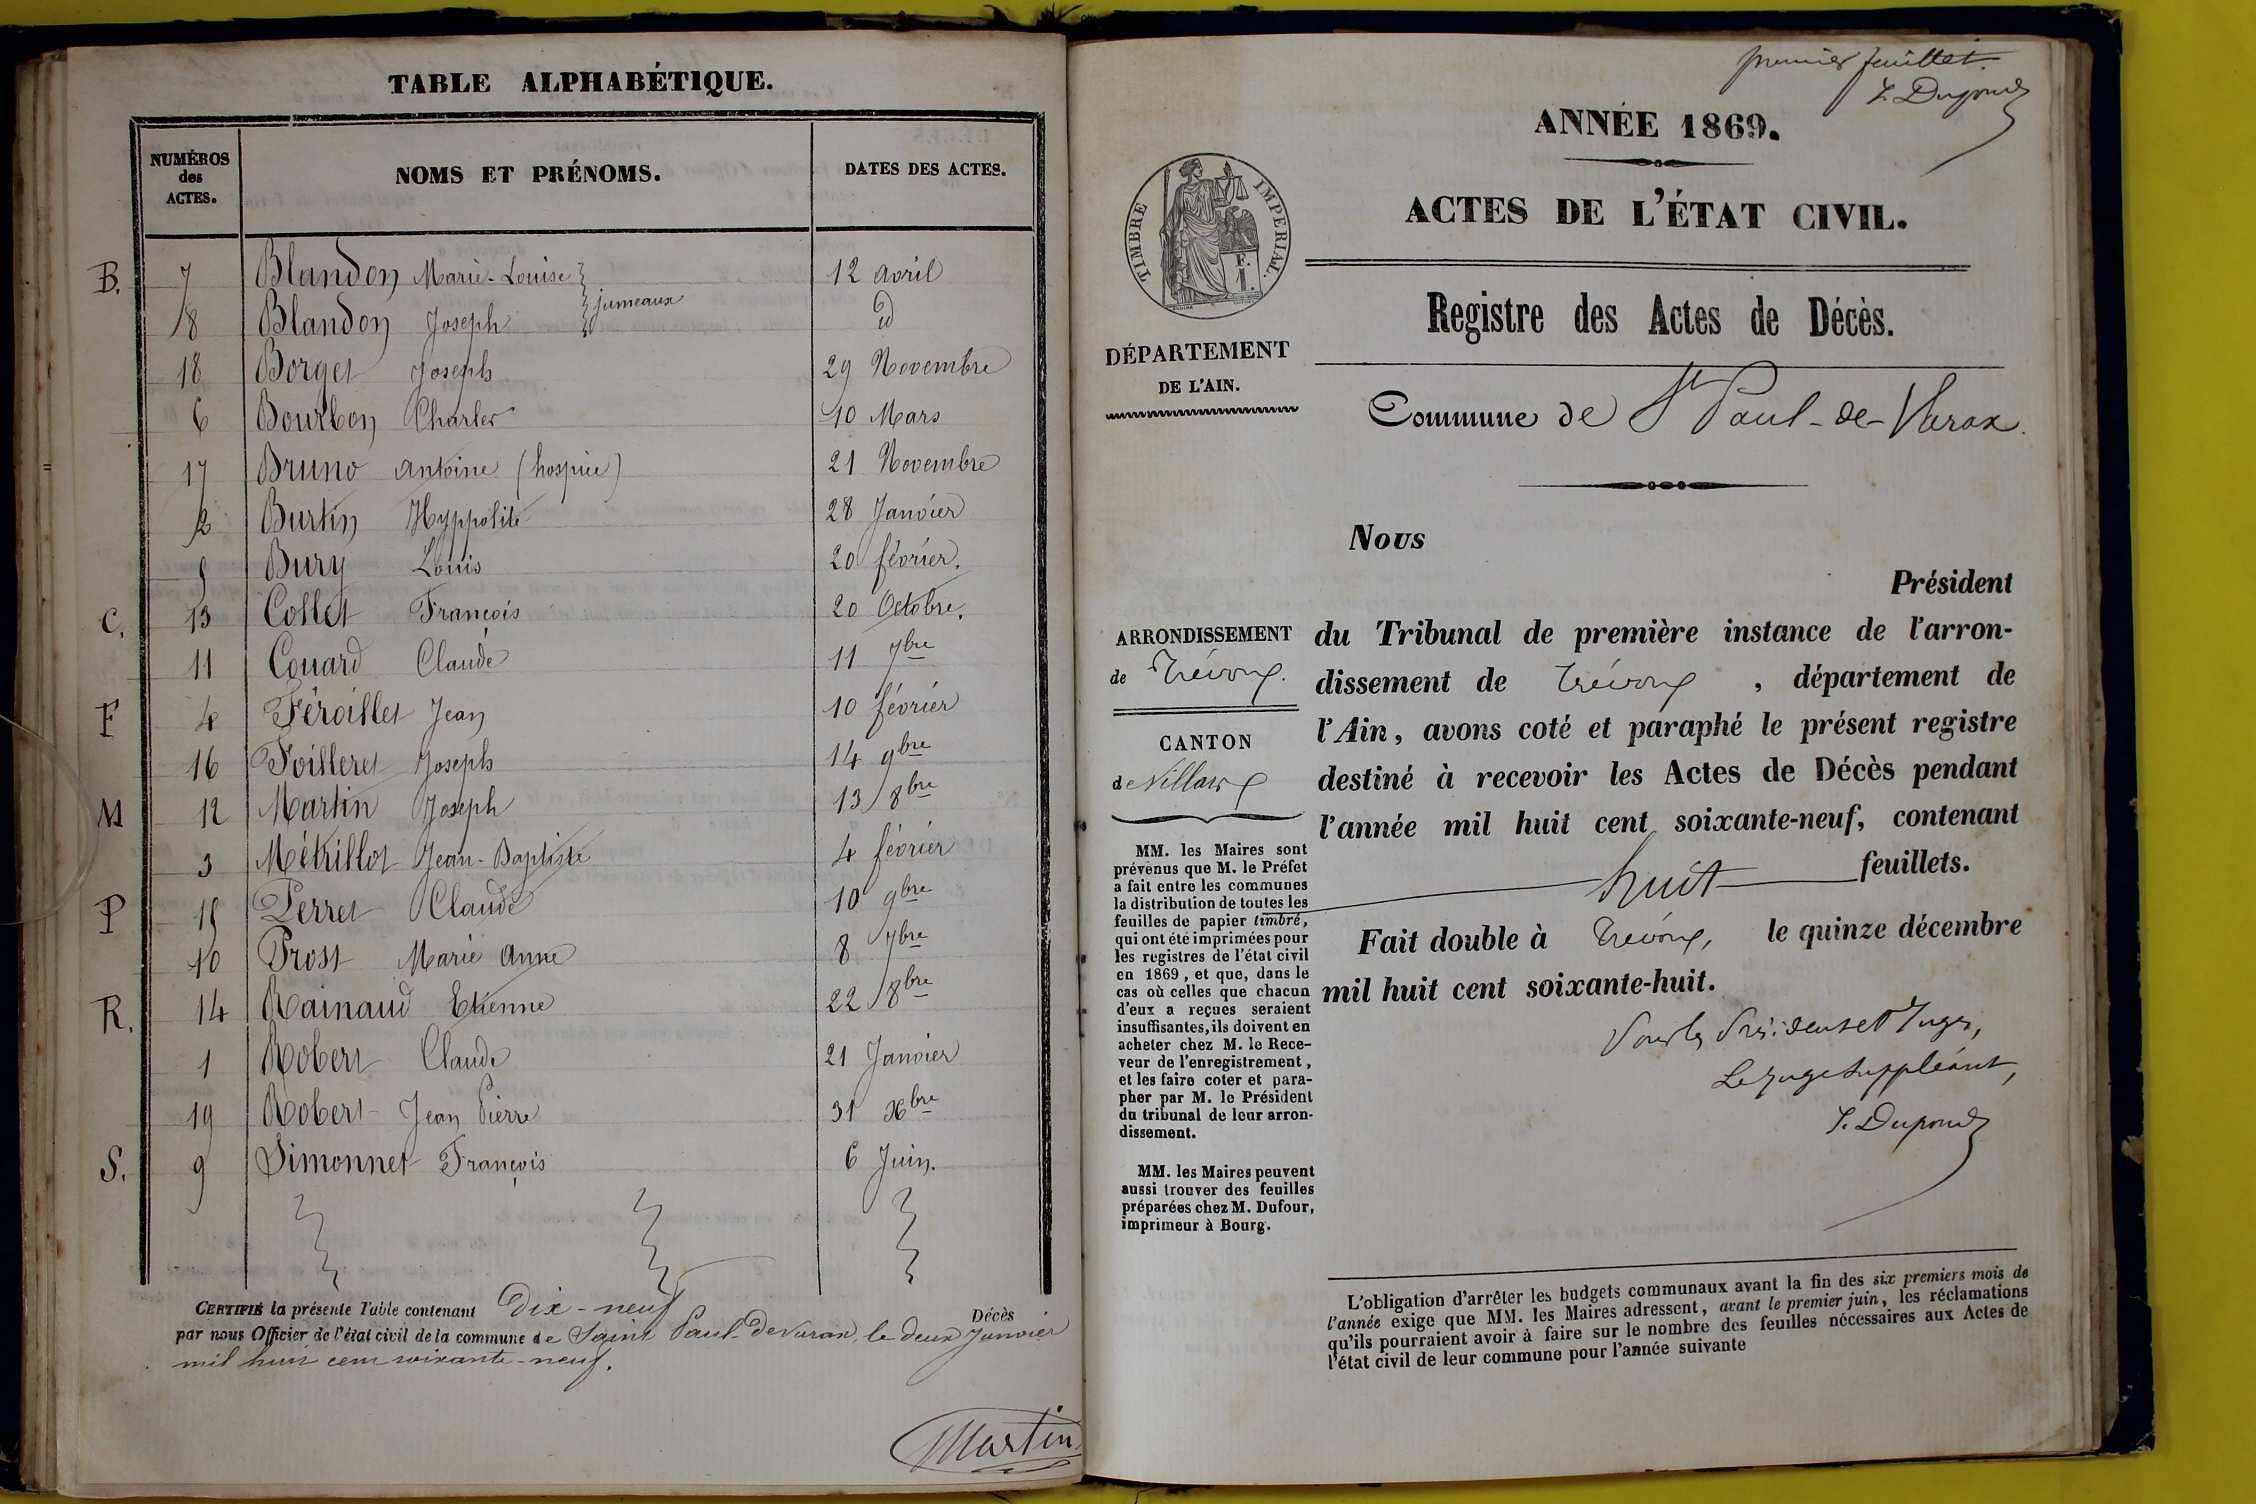 TABLE ALPHABÉTIQUE.
NUMÉROS des ACTES. NOMS ET PRÉNOMS. DATES DES ACTES.
B. 7 Blandon Marie-Louise 12 avril
8 Blandon Joseph jumeaux id
18 Borget Joseph 29 Novembre
6 Bourbon Charles 10 Mars
17 Bruno antoine (hospice) 21 Novembre
2 Burtin Hyppolite 28 Janvier
5 Bury Louis 20 février.
C. 13 Collet François 20 Octobre.
11 Couard Claude 11 7bre
F 4 Féroillet Jean 10 février
16 Foilleret Joseph 14 9bre
M 12 Martin Joseph 13 8bre
3 Métrillot Jean-Baptiste 4 février
P 15 Perret Claude 10 9bre
10 Prost Marie anne 8 7bre
R. 14 Rainaud Etienne 22 8bre
1 Robert Claude 21 Janvier
19 Robert Jean Pierre 31 Xbre
S. 9 Simonnet François 6 Juin.
CERTIFIÉ la présente Table contenant Dix-neuf Décès
par nous Officier de l'état civil de la commune de Saint Paul-de Varax, le deux Janvier
mil huit cent soixante-neuf.
Martin
premier feuillet.
ANNÉE 1869.
ACTES DE L'ÉTAT CIVIL.
TIMBRE IMPERIAL.
F.
1.
Registre des Actes de Décès.
DÉPARTEMENT
DE L'AIN.
Commune de St Paul-de-Varax.
Nous
Président
ARRONDISSEMENT
de Trévoux.
CANTON
de Villars
du Tribunal de première instance de l'arron-
dissement de Trévoux , département de
l'Ain, avons coté et paraphé le présent registre
destiné à recevoir les Actes de Décès pendant
l'année mil huit cent soixante-neuf, contenant
huit feuillets.
Fait double à Trévoux, le quinze décembre
mil huit cent soixante-huit.
Le Juge Suppléant,
MM. les Maires sont
prévenus que M. le Préfet
a fait entre les communes
la distribution de toutes les
feuilles de papier timbré,
qui ont été imprimées pour
les registres de l'état civil
en 1869, et que, dans le
cas où celles que chacun
d'eux a reçues seraient
insuffisantes, ils doivent en
acheter chez M. le Rece-
veur de l'enregistrement,
et les faire coter et para-
pher par M. le Président
du tribunal de leur arron-
dissement.
MM. les Maires peuvent
aussi trouver des feuilles
préparées chez M. Dufour,
imprimeur à Bourg.
L'obligation d'arrêter les budgets communaux avant la fin des six premiers mois de
l'année exige que MM. les Maires adressent, avant le premier juin, les réclamations
qu'ils pourraient avoir à faire sur le nombre des feuilles nécessaires aux Actes de
l'état civil de leur commune pour l'année suivante